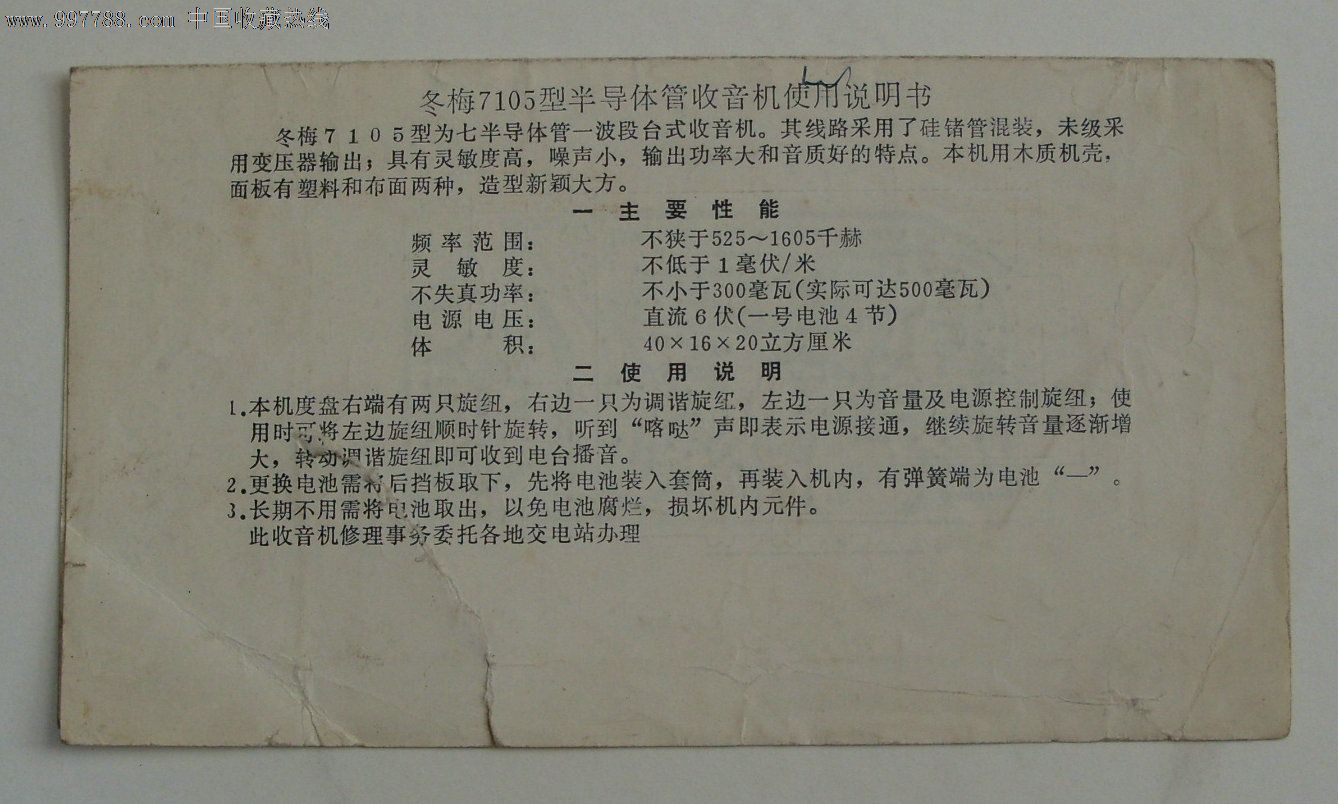 www.997788.com 中国收藏热线
冬梅7105型半导体管收音机使用说明书
冬梅7105型为七半导体管一波段台式收音机。其线路采用了硅锗管混装，未级采
用变压器输出；具有灵敏度高，噪声小，输出功率大和音质好的特点。本机用木质机壳，
面板有塑料和布面两种，造型新颖大方。
一 主要性能
频率范围： 不狭于525～1605千赫
灵敏度： 不低于1毫伏/米
不失真功率： 不小于300毫瓦(实际可达500毫瓦)
电源电压： 直流6伏(一号电池4节)
体积： 40×16×20立方厘米
二 使用说明
1.本机度盘右端有两只旋纽，右边一只为调谐旋纽，左边一只为音量及电源控制旋纽；使
用时可将左边旋纽顺时针旋转，听到“喀哒”声即表示电源接通，继续旋转音量逐渐增
大，转动调谐旋纽即可收到电台播音。
2.更换电池需将后挡板取下，先将电池装入套筒，再装入机内，有弹簧端为电池“—”。
3.长期不用需将电池取出，以免电池腐烂，损坏机内元件。
此收音机修理事务委托各地交电站办理